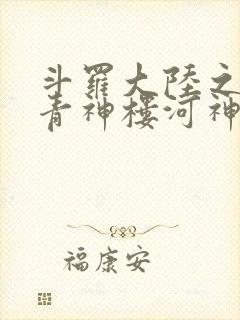 斗羅大陸之
青神樓河神
福康安